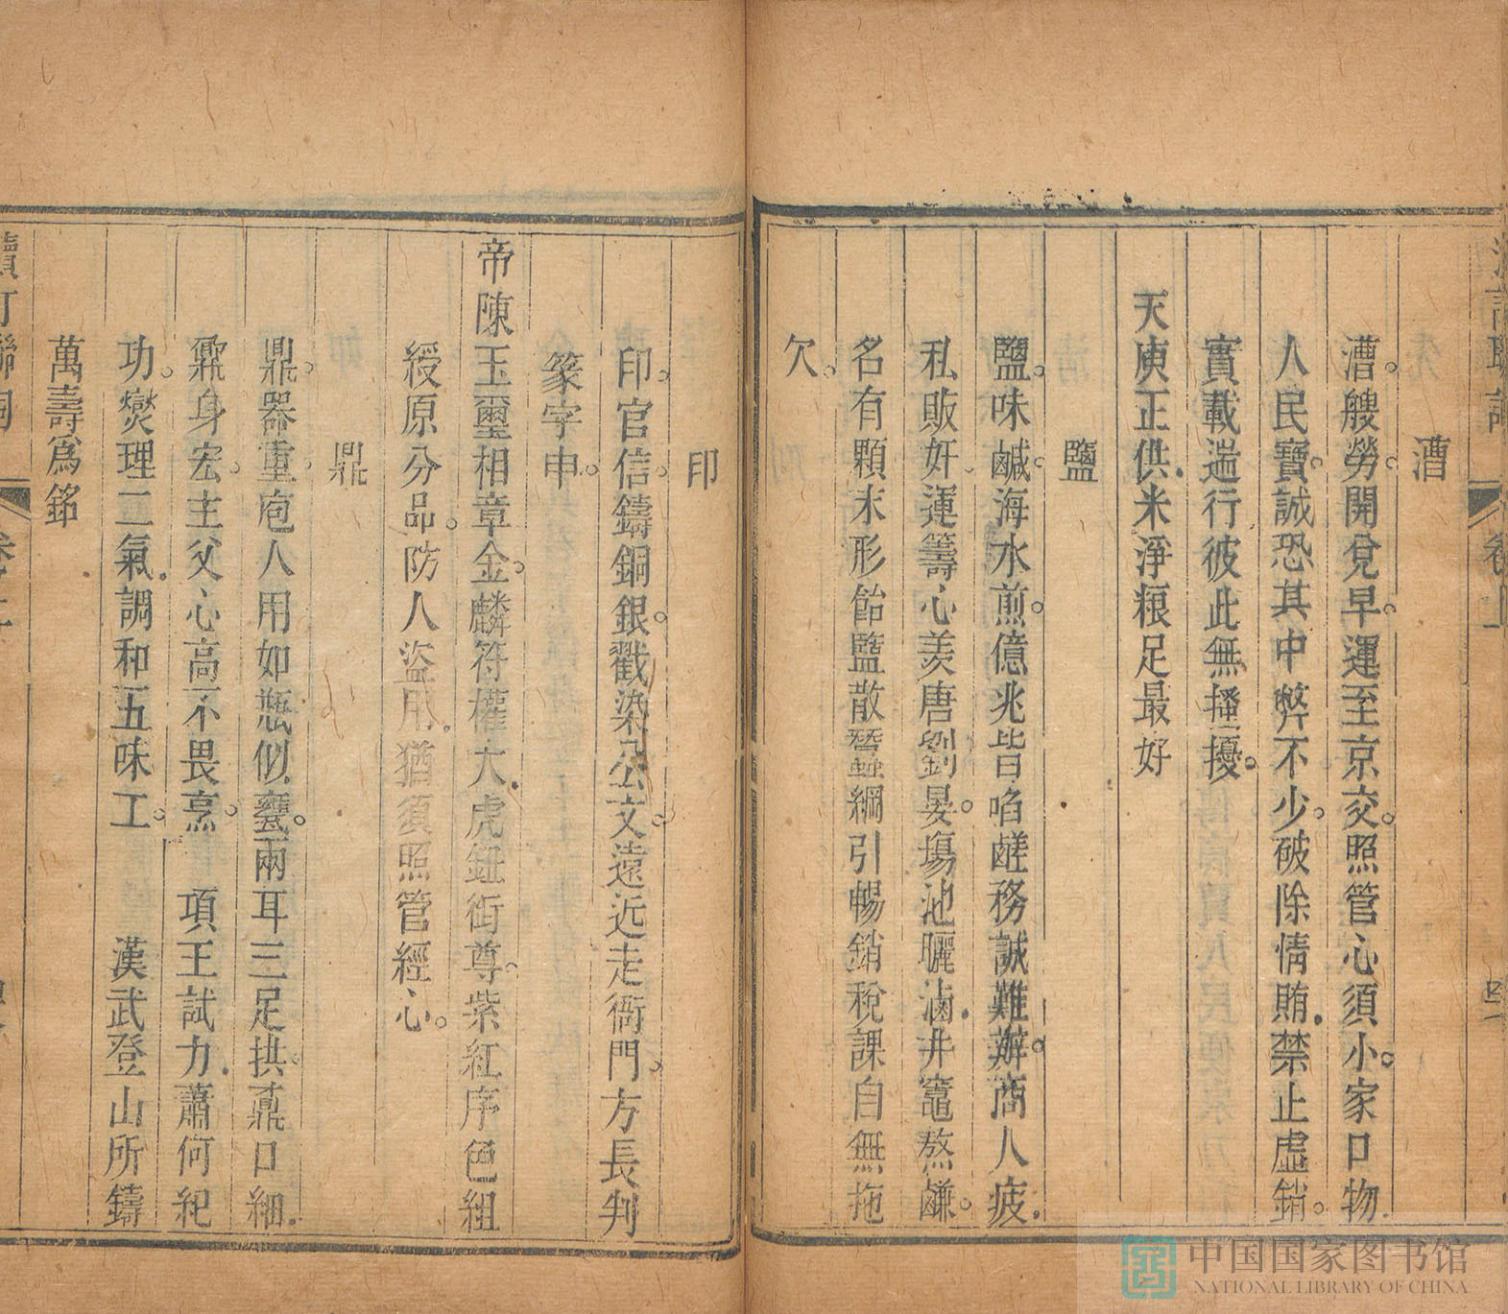 漕
漕艘勞開兌早運至京交照管心須小家口物
人民寶誠恐其中弊不少破除情賄禁止虛銷
實載遄行彼此無搔擾
天庾正供米淨粮足最好
鹽
鹽味鹹海水煎億兆皆啗鹺務誠難辦商人疲
私販奸運籌心羨唐劉晏塲池曬滷井竈熬鹻
名有顆末形飴鹽散鹽綱引暢銷稅課自無拖
欠
印
印官信鑄銅銀戳染公文遠近走衙門方長判
篆字申
帝陳玉璽相章金麟符權大虎鈕銜尊紫紅序色組
綬原分品防人盜用猶須照管經心
鼎
鼎器重庖人用如瓶似甕兩耳三足拱鼐口細
鼐身宏主父心高不畏烹 項王試力蕭何紀
功爕理二氣調和五味工 漢武登山所鑄
萬壽爲銘
卷上
中国国家图书馆
NATIONAL LIBRARY OF CHINA